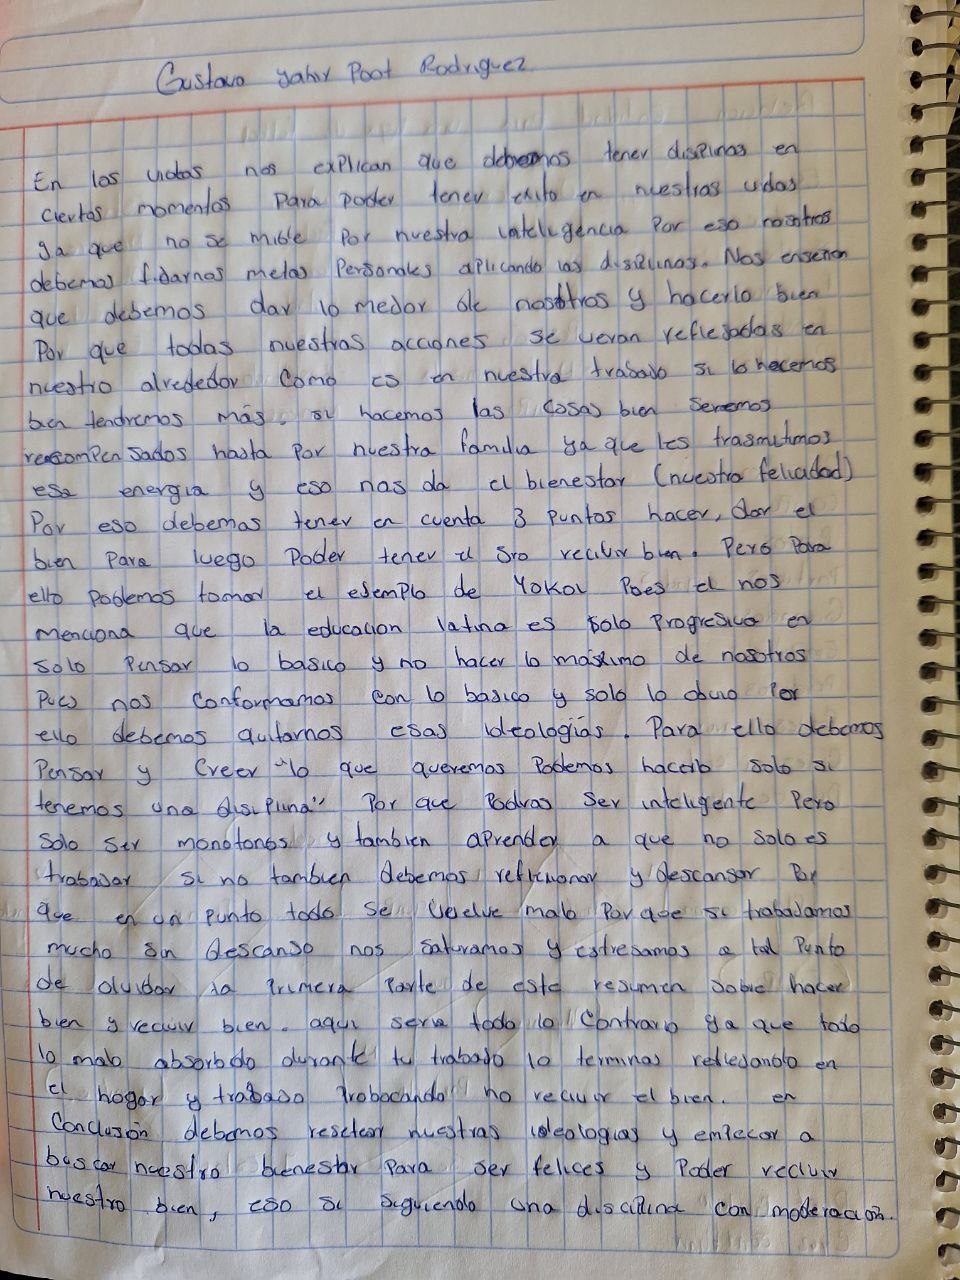 Gustavo Yahir Poot Rodriguez
En los vidas nos explican que debemos tener disiplinas en
ciertas momentos para poder tener exito en nuestras vidas
ya que no se mide por nuestra inteligencia por eso nosotros
debemos fidarnos metas personales aplicando las disiplinas. Nos enseñan
que debemos dar lo medor de nosotros y hacerlo bien
Por que todas nuestras acciones se veran reflejadas en
nuestro alrededor como es en nuestra trabajo si lo hacemos
bien tendremos más, si hacemos las cosas bien seremos
recompensados hasta por nuestra familia ya que les trasmitimos
esa energia y eso nos da el bienestar (nuestra felicidad)
Por eso debemos tener en cuenta 3 puntos hacer, dar el
bien para luego poder tener el recivir bien. Pero para
ello podemos tomar el ejemplo de Yokoi Pues el nos
menciona que la educacion latina es solo progresivo en
solo pensar lo basico y no hacer lo máximo de nosotros
Pues nos conformamos con lo basico y solo lo obvio Por
ello debemos quitarnos esas ideologiás. Para ello debemos
Pensar y creer "lo que queremos podemos hacerlo solo si
tenemos una disiplina" Por que podras ser inteligente Pero
solo ser monotonos y tambien aprender a que no solo es
trabajar si no tambien debemos reflexionar y descansar Por
que en un punto todo se vuelve malo porque si trabajamos
mucho sin descanso nos saturamos y estresamos a tal punto
de olvidar la primera parte de este resumen sobre hacer
bien y recivir bien. aqui seria todo lo contrario ya que todo
lo malo absorbido durante tu trabajo lo terminas reflejando en
el hogar y trabajo Probocando no recivir el bien. en
Conclusión debemos resetear nuestras ideologias y empezar a
buscar nuestro bienestar para ser felices y Poder recivir
nuestro bien, eso si siguiendo una disciplina con moderación.